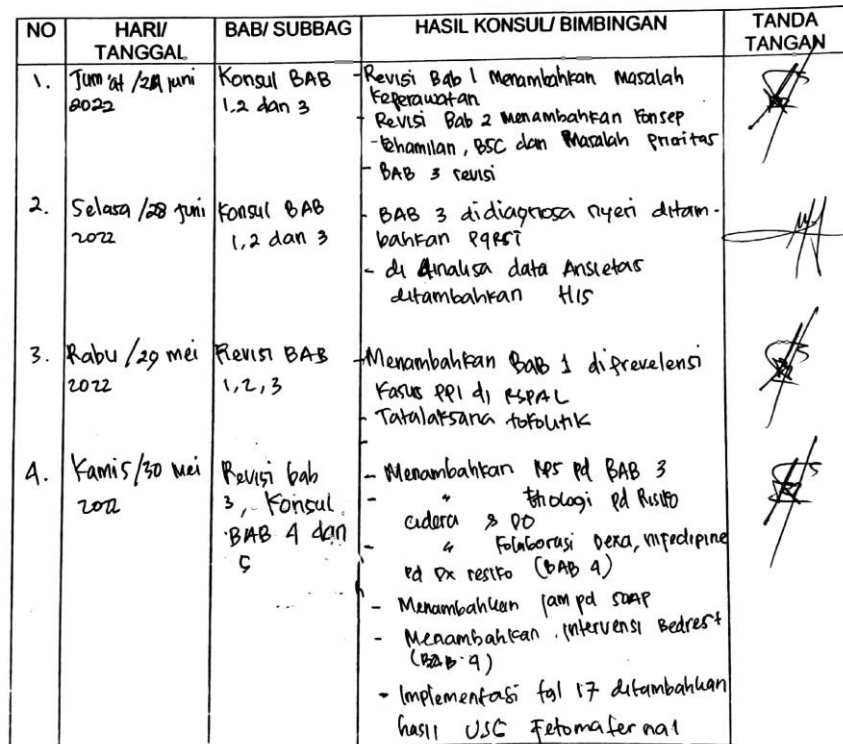 NO HARI/ TANGGAL BAB/ SUBBAG HASIL KONSUL/ BIMBINGAN TANDA TANGAN
1. Jum'at /24 juni 2022
Konsul BAB
1.2 dan 3
- Revisi Bab 1 Menambahkan Masalah
Keperawatan
- Revisi Bab 2 Menambahkan Konsep
- Kehamilan, BSC dan Masalah Prioritas
- BAB 3 revisi
2. Selasa /28 juni
2022
Konsul BAB
1,2 dan 3
- BAB 3 didiagnosa nyeri ditam-
bahkan PQRST
- di Analisa data Ansietas
ditambahkan HIS
3. Rabu /29 mei
2022
Revisi BAB
1,2,3
- Menambahkan BAB 1 di prevelensi
Kasus PPI di RSPAL
- Tatalaksana tokolitik
4. Kamis/30 mei
2022
Revisi bab
3, Konsul
BAB 4 dan
5
- Menambahkan RPS pd BAB 3
- " Etiologi pd Risiko
cidera & DO
- " Kolaborasi Dexa, nifedipine
pd Dx resiko (BAB 4)
- Menambahkan jam pd SOAP
- Menambahkan intervensi Bedrest
(BAB 4)
- Implementasi tgl 17 ditambahkan
hasil USG Fetomaternal